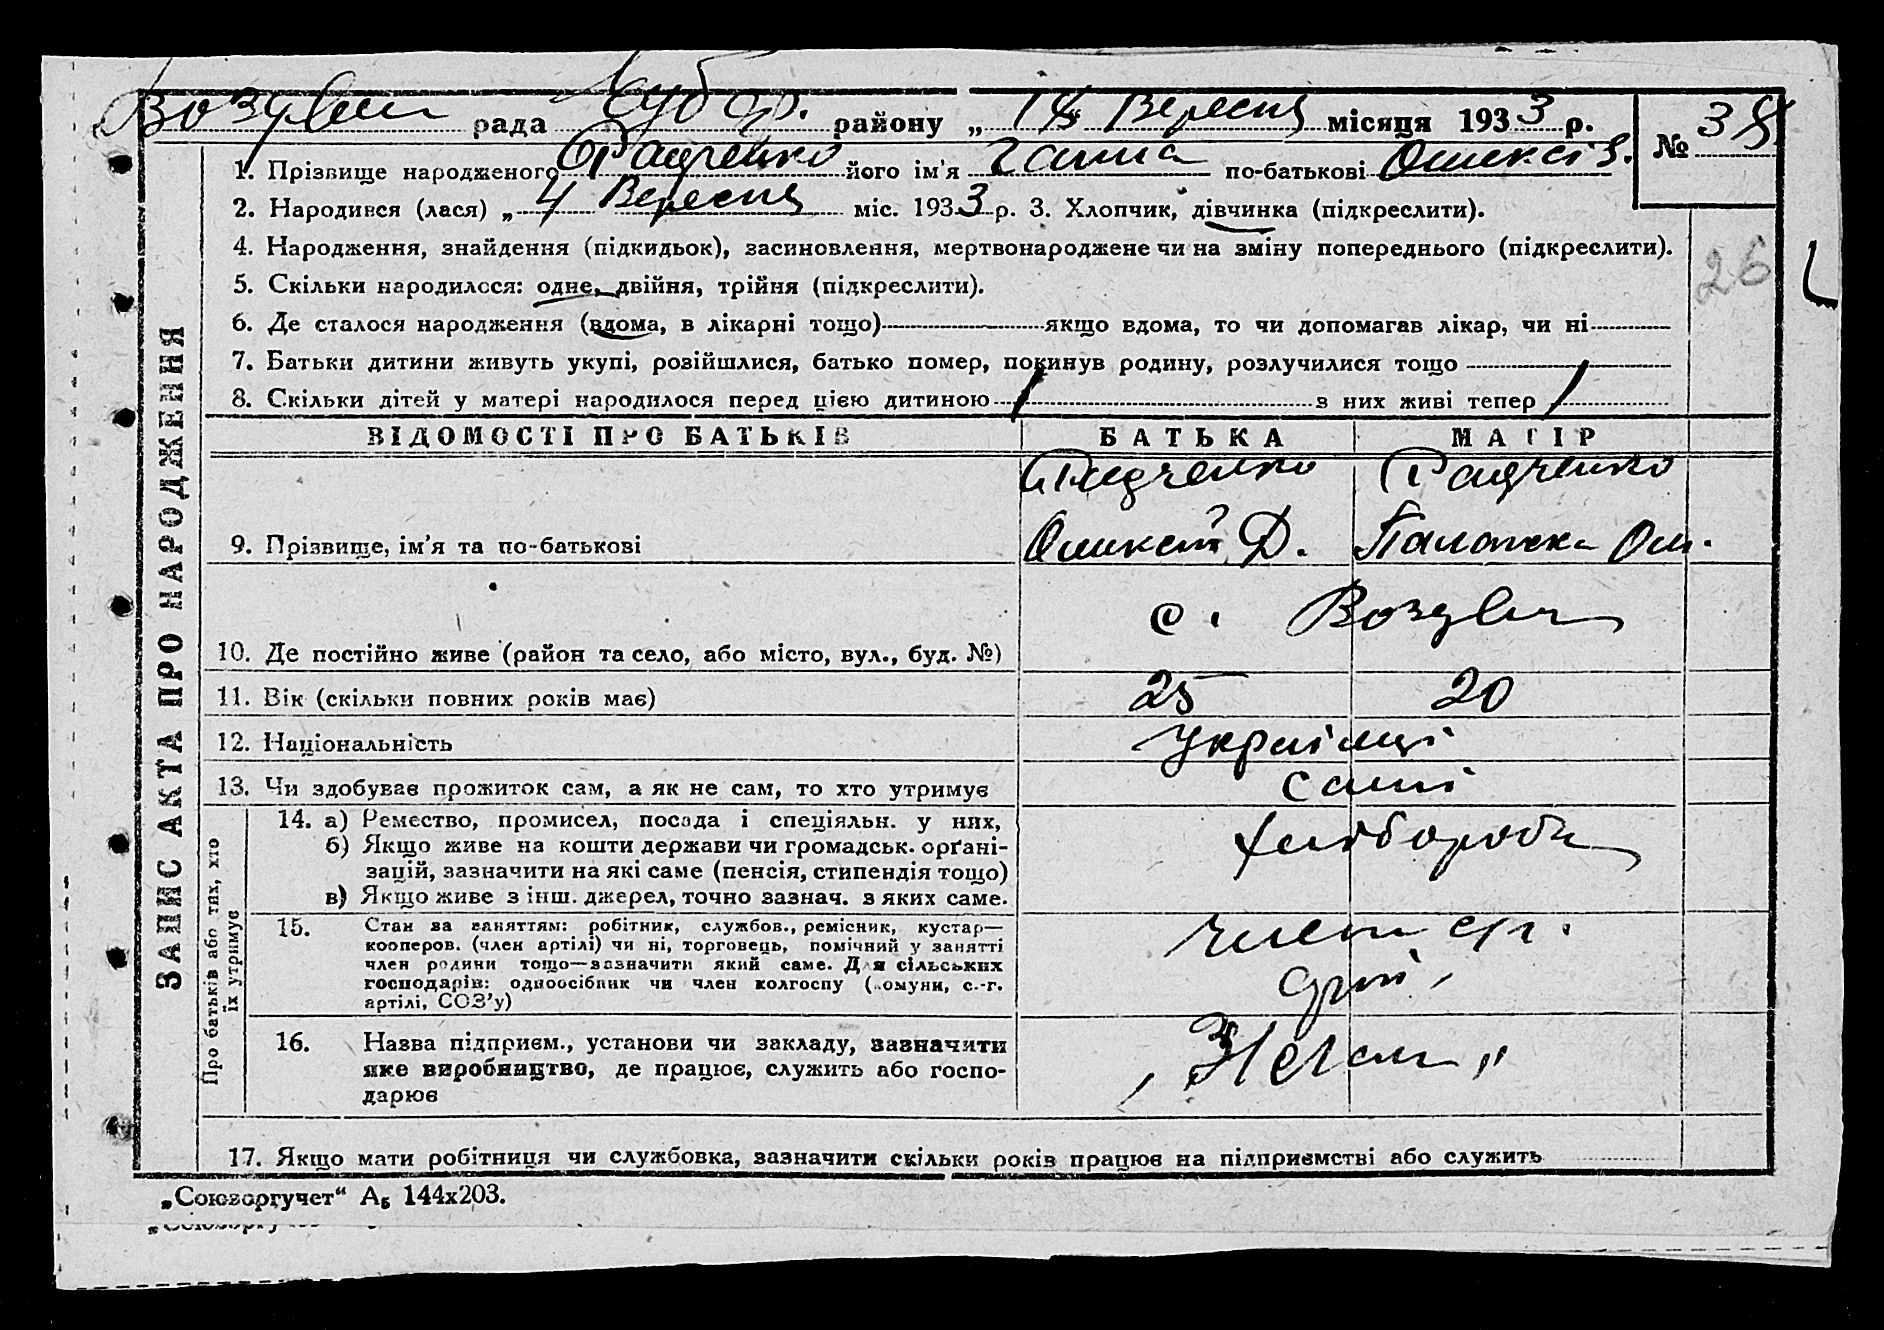 рада району „ 18 Вересня місяця 1933 р. № 38
1. Прізвище народженого Радченко його ім'я Ганна по-батькові Олексіїв.
2. Народився (лася) „ 4 Вересня міс. 1933 р. 3. Хлопчик, дівчинка (підкреслити).
4. Народження, знайдення (підкидьок), засиновлення, мертвонароджене чи на зміну попереднього (підкреслити).
26
5. Скільки народилося: одне, двійня, трійня (підкреслити).
6. Де сталося народження (вдома, в лікарні тощо) якщо вдома, то чи допомагав лікар, чи ні
7. Батьки дитини живуть укупі, розійшлися, батько помер, покинув родину, розлучилися тощо
8. Скільки дітей у матері народилося перед цією дитиною 1 з них живі тепер 1
ЗАПИС АКТА ПРО НАРОДЖЕННЯ
ВІДОМОСТІ ПРО БАТЬКІВ БАТЬКА МАТІР
Радченко Радченко
9. Прізвище, ім'я та по-батькові Олексій Д. Палажка Ол.
10. Де постійно живе (район та село, або місто, вул., буд. №) с.
11. Вік (скільки повних років має) 25 20
12. Національність Українці
13. Чи здобуває прожиток сам, а як не сам, то хто утримує самі
Про батьків або тих, хто їх утримує
14. а) Ремество, промисел, посада і спеціяльн. у них, хлібороби
б) Якщо живе на кошти держави чи громадськ. орґані-
зацій, зазначити на які саме (пенсія, стипендія тощо)
в) Якщо живе з інш. джерел, точно зазнач. з яких саме.
15. Стан за заняттям: робітник, службов., ремісник, кустар—
кооперов. (член артілі) чи ні, торговець, помічний у занятті
член родини тощо—зазначити який саме. Для сільських
господарів: одноосібник чи член колгоспу (комуни, с.-г.
артілі, СОЗ'у)
16. Назва підприєм., установи чи закладу, зазначити
яке виробництво, де працює, служить або госпо-
дарює
17. Якщо мати робітниця чи службовка, зазначити скільки років працює на підприємстві або служить
„Союзоргучет“ А₅ 144x203.